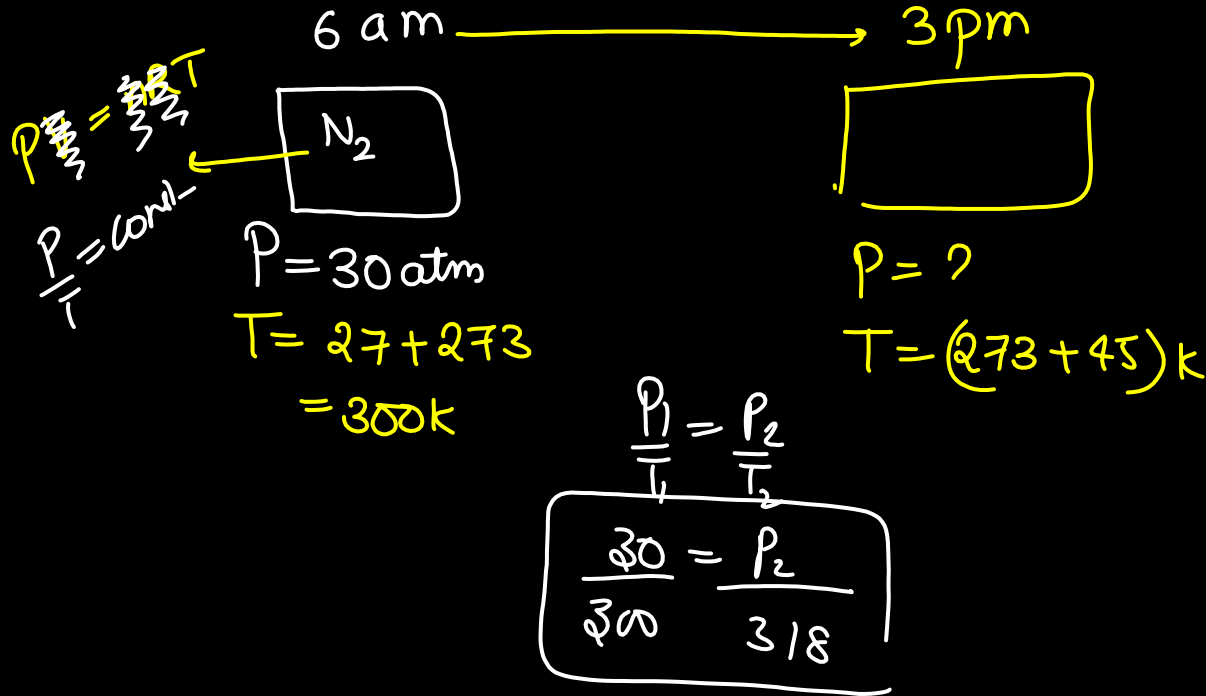 6 am → 3 pm
P = T
N₂
P/T = const
P = 30 atm
T = 27 + 273
= 300 K
P = ?
T = (273 + 45) K
P₁/T₁ = P₂/T₂
30/300 = P₂/318